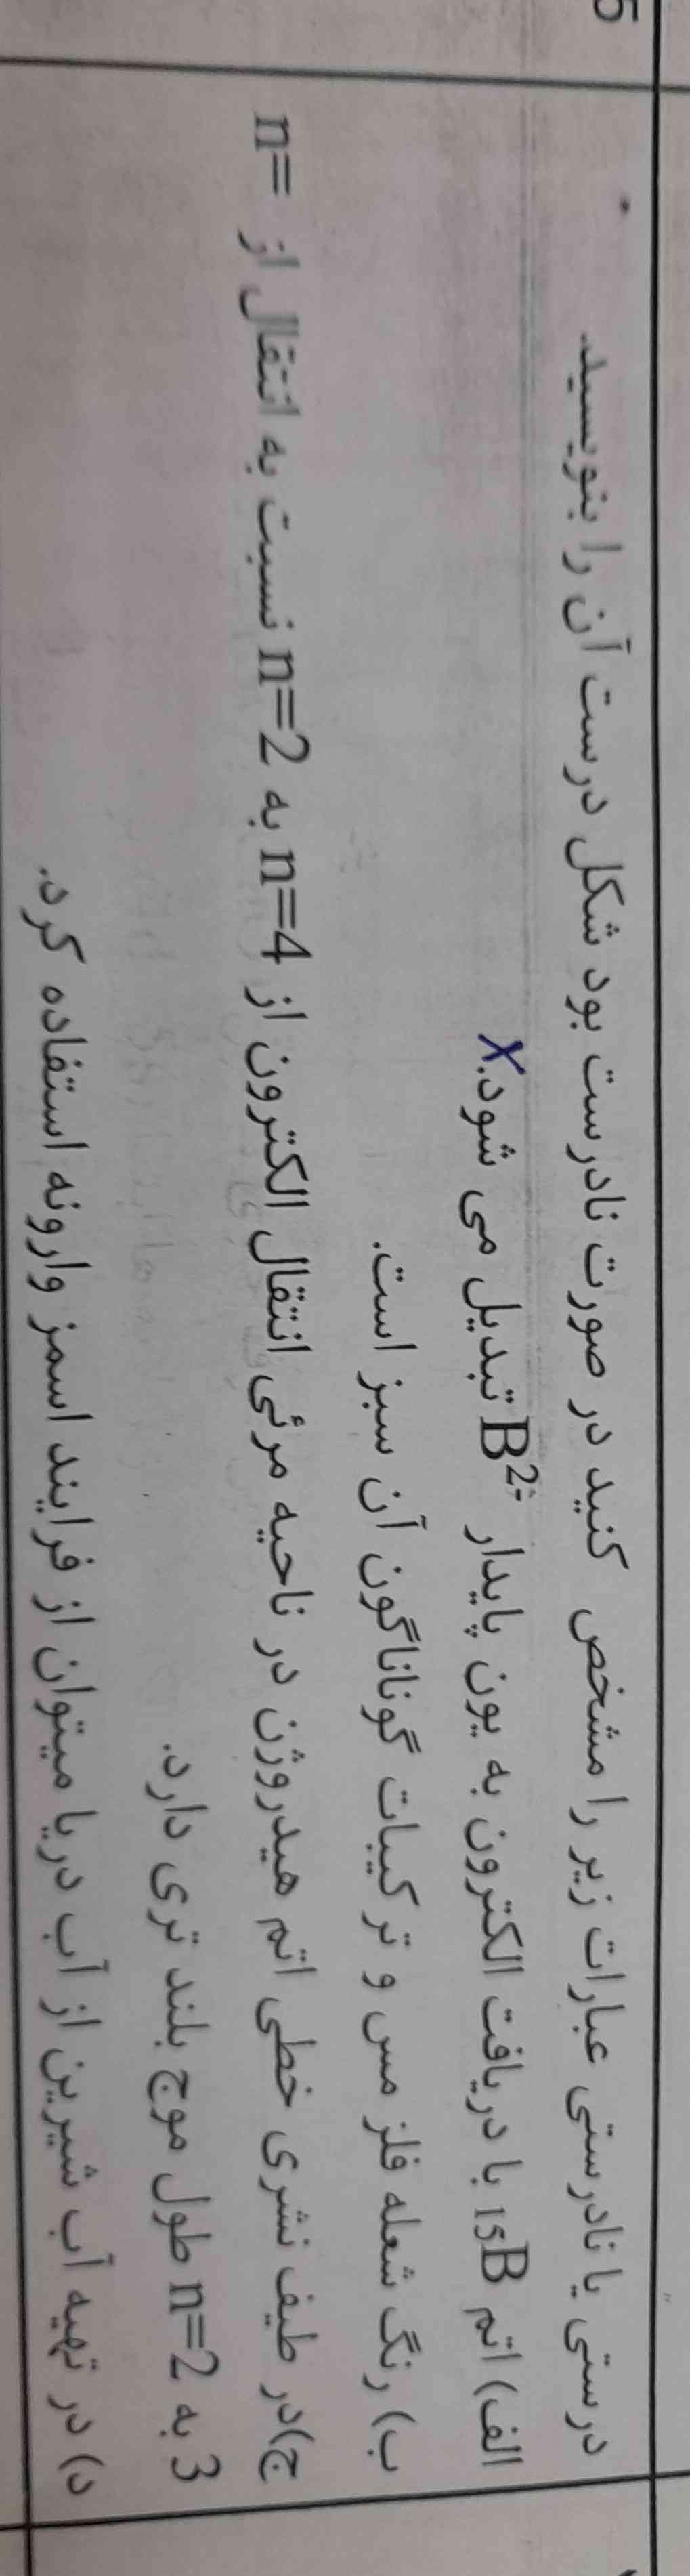 درستی یا نادرستی عبارات زیر را مشخص کنید در صورت نادرست بود شکل درست آن را بنویسید.
الف) اتم 15B با دریافت الکترون به یون پایدار B²⁻ تبدیل می شود. X
ب) رنگ شعله فلز مس و ترکیبات گوناگون آن سبز است.
ج)در طیف نشری خطی اتم هیدروژن در ناحیه مرئی انتقال الکترون از n=4 به n=2 نسبت به انتقال از n=
3 به n=2 طول موج بلند تری دارد.
د) در تهیه آب شیرین از آب دریا میتوان از فرایند اسمز وارونه استفاده کرد.